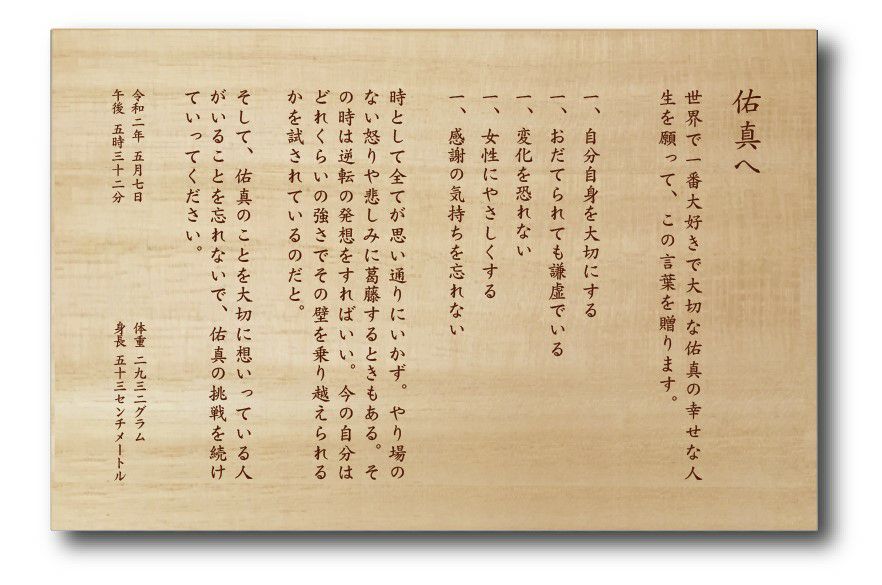 佑真へ
世界で一番大好きで大切な佑真の幸せな人
生を願って、この言葉を贈ります。
一、自分自身を大切にする
一、おだてられても謙虚でいる
一、変化を恐れない
一、女性にやさしくする
一、感謝の気持ちを忘れない
時として全てが思い通りにいかず。やり場の
ない怒りや悲しみに葛藤するときもある。そ
の時は逆転の発想をすればいい。今の自分は
どれくらいの強さでその壁を乗り越えられる
かを試されているのだと。
そして、佑真のことを大切に想いっている人
がいることを忘れないで、佑真の挑戦を続け
ていってください。
令和二年 五月七日
午後 五時三十二分
体重 二九三二グラム
身長 五十三センチメートル